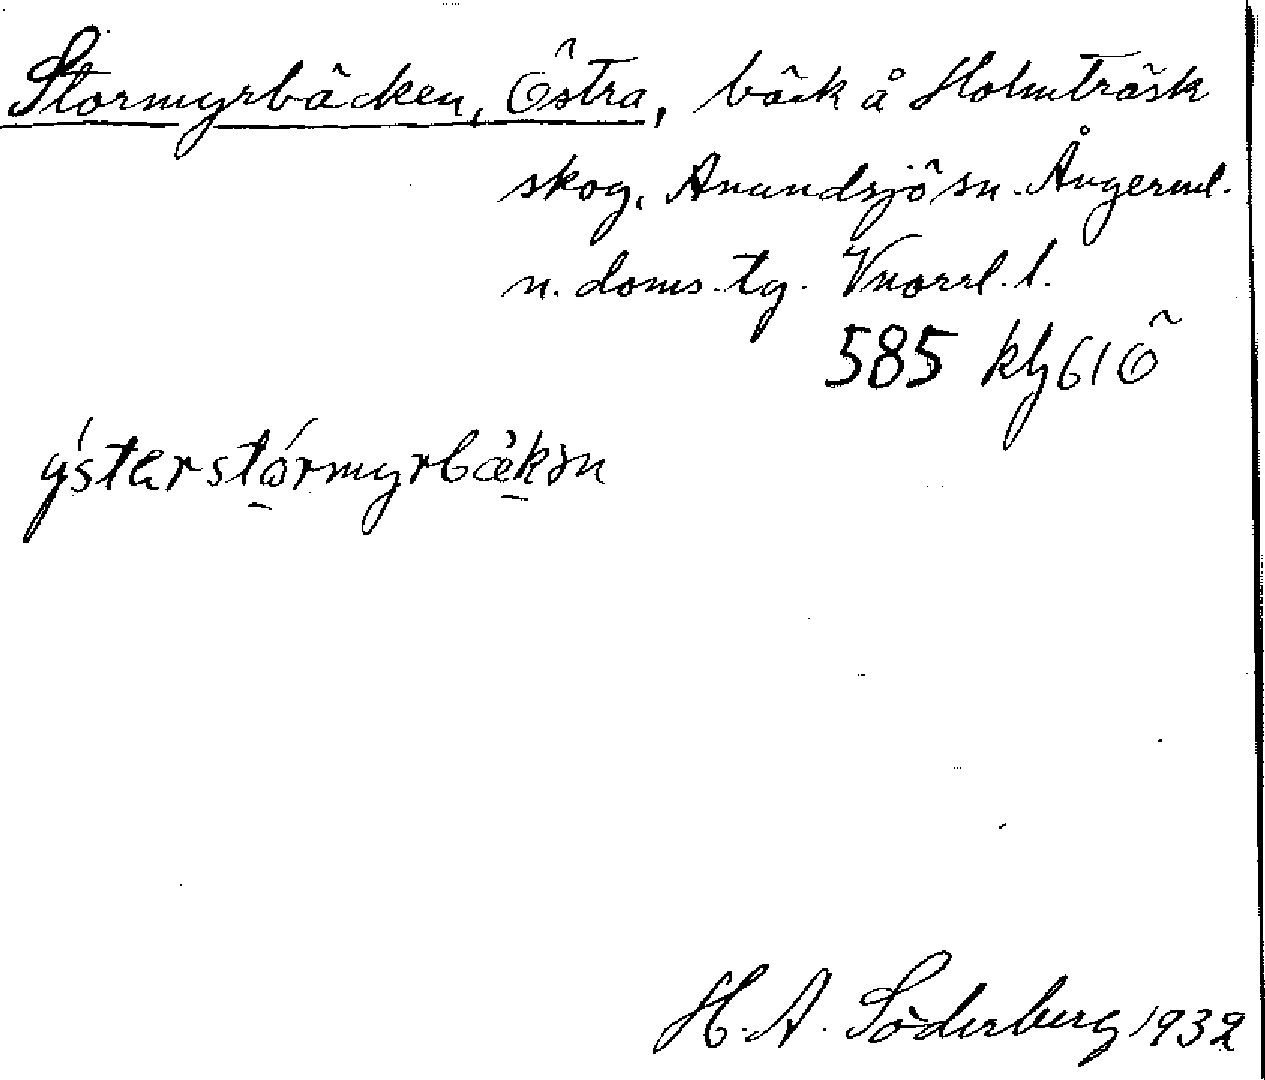 Stormyrbäcken, Östra, bäck å Holmträsk
skog, Anundsjö sn. Ångerml.
n. doms. tg. Vnorrl. l.
585 kbf 61 Ö
ýsterstórmyrbæ̀kən
H. A. Söderberg 1932